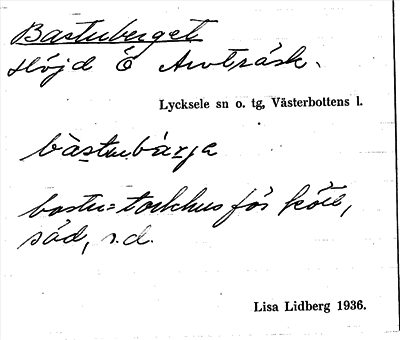 Bastuberget
Höjd Ö Arvträsk.
Lycksele sn o. tg, Västerbottens l.
bàstubærja
bastu = torkhus för kött,
säd, s.d.
Lisa Lidberg 1936.